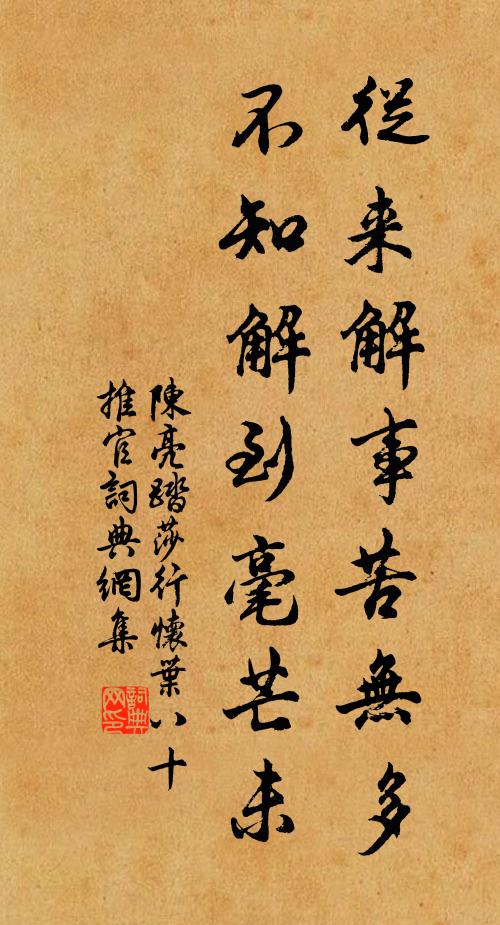 從来解事苦無多
不知解到毫芒未
陳亮踏莎行懷葉八十
推官詞典網集
詞典网印